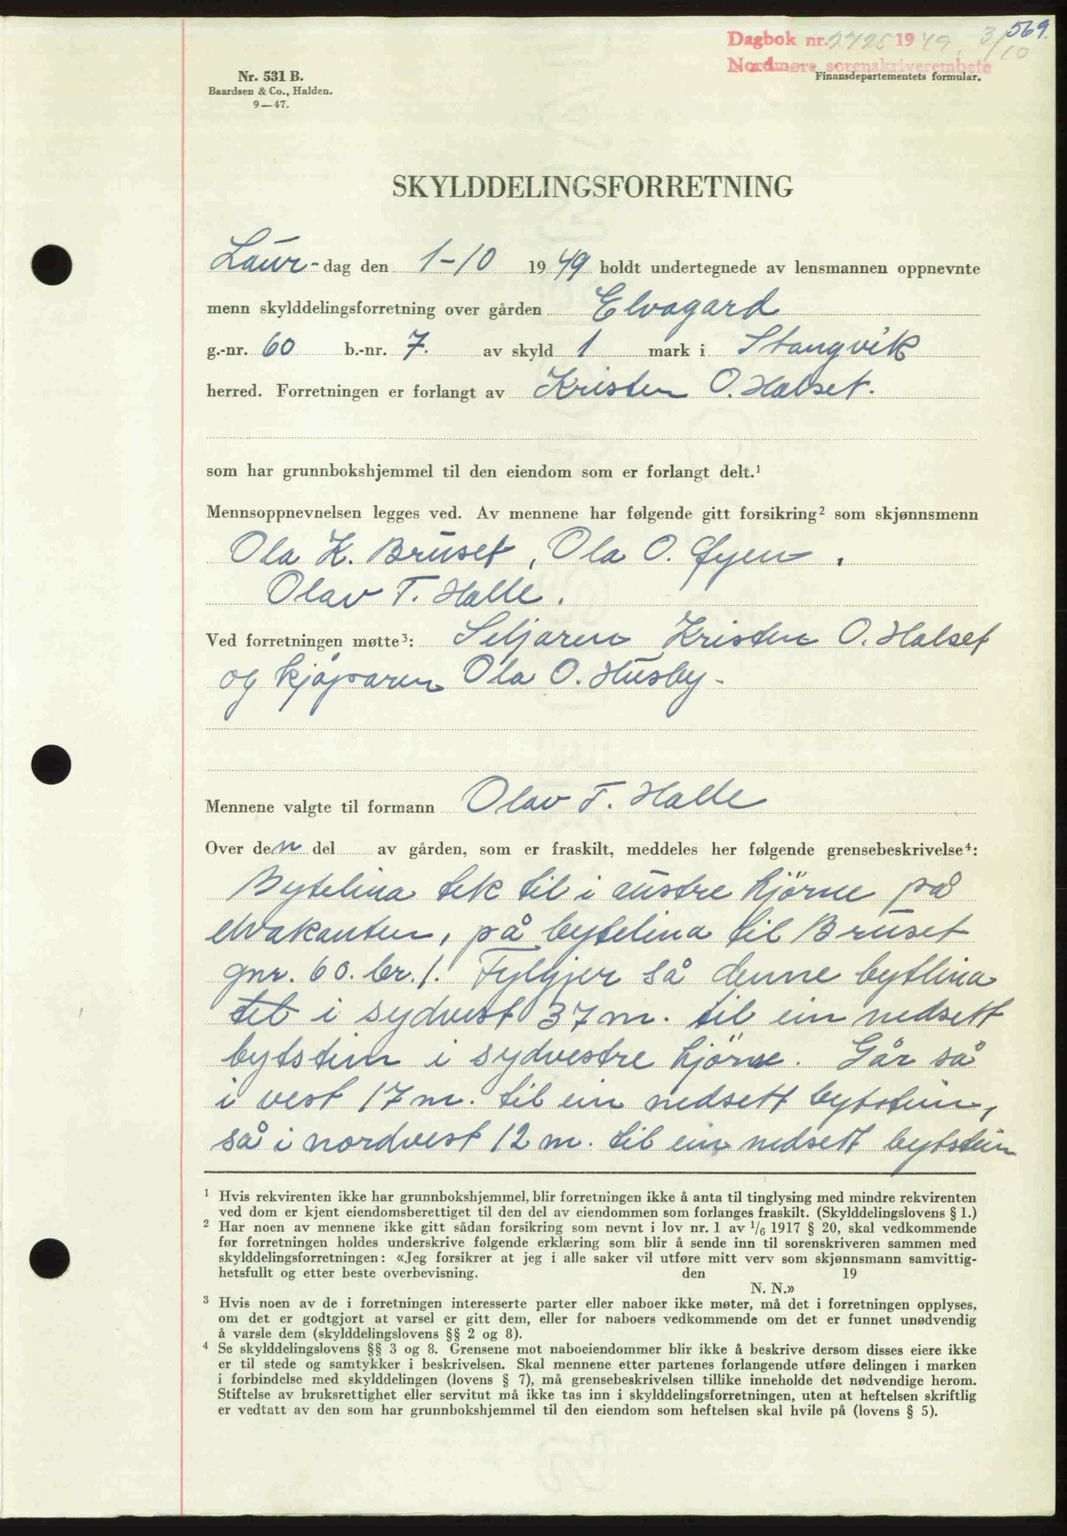 569.
Dagbok nr. 2725 1949. 3/10
Nordmøre sorenskriverembete
Nr. 531 B.
Baardsen & Co., Halden.
9—47.
Finansdepartementets formular.
SKYLDDELINGSFORRETNING
Laur-dag den 1-10 1949 holdt undertegnede av lensmannen oppnevnte
menn skylddelingsforretning over gården Elvagard
g.-nr. 60 b.-nr. 7. av skyld 1 mark i Stangvik
herred. Forretningen er forlangt av Kristen O. Halset.
som har grunnbokshjemmel til den eiendom som er forlangt delt.¹
Mennsoppnevnelsen legges ved. Av mennene har følgende gitt forsikring² som skjønnsmenn
Ola K. Bruset, Ola O. Øyen,
Olav T. Halle.
Ved forretningen møtte³: Seljaren Kristen O. Halset
og kjøparen Ola O. Husby-
Mennene valgte til formann Olav T. Halle
Over den del av gården, som er fraskilt, meddeles her følgende grensebeskrivelse⁴:
Bytelina tek til i austre hjörne på
elvakanten, på bytelina til Bruset
gnr. 60. br. 1. Fylgjer så denne bytlina
tel i sydvest 37 m. til ein nedsett
bytstein i sydvestre hjörne. Går så
i vest 17 m. til ein nedsett bytstein,
så i nordvest 12 m. til ein nedsett bytstein
¹ Hvis rekvirenten ikke har grunnbokshjemmel, blir forretningen ikke å anta til tinglysing med mindre rekvirenten
ved dom er kjent eiendomsberettiget til den del av eiendommen som forlanges fraskilt. (Skylddelingslovens § 1.)
² Har noen av mennene ikke gitt sådan forsikring som nevnt i lov nr. 1 av 1/6 1917 § 20, skal vedkommende
før forretningen holdes underskrive følgende erklæring som blir å sende inn til sorenskriveren sammen med
skylddelingsforretningen: «Jeg forsikrer at jeg i alle saker vil utføre mitt verv som skjønnsmann samvittig-
hetsfullt og etter beste overbevisning. den 19
N. N.»
³ Hvis noen av de i forretningen interesserte parter eller naboer ikke møter, må det i forretningen opplyses,
om det er godtgjort at varsel er gitt dem, eller for naboers vedkommende om det er funnet unødvendig
å varsle dem (skylddelingslovens §§ 2 og 8).
⁴ Se skylddelingslovens §§ 3 og 8. Grensene mot naboeiendommer blir ikke å beskrive dersom disses eiere ikke
er til stede og samtykker i beskrivelsen. Skal mennene etter partenes forlangende utføre delingen i marken
i forbindelse med skylddelingen (lovens § 7), må grensebeskrivelsen tillike inneholde det nødvendige herom.
Stiftelse av bruksrettighet eller servitut må ikke tas inn i skylddelingsforretningen, uten at heftelsen skriftlig
er vedtatt av den som har grunnbokshjemmel til den eiendom som heftelsen skal hvile på (lovens § 5).